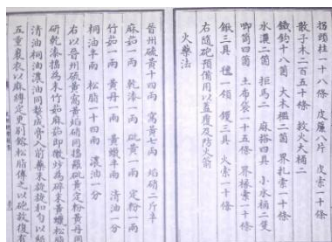 頭柱一十八條 皮簾八片 皮索一十條
散子木二百五十條 救火大桶二
鐵鈎十八箇 大木檻二箇 界扎索一十條
水濃二箇 拒馬二 麻搭四具 小水桶二隻
唧筒四箇 土布袋一十五條 界椽索一十條
鍬三具 領 钁三具 火索一十條
右隨砲預備用以蓋覆及防火箭
火藥法
晉州硫黄十四兩 窩黄七兩 焰硝二斤半
麻茹一兩 乾漆一兩 砒黄一兩 定粉一兩
竹茹一兩 黄丹一兩 黄蠟半兩 清油一分
桐油半兩 松脂一十四兩 濃油一分
右以晉州硫黄窩黄焰硝同搗羅砒黄定粉黄丹同
研乾漆搗為末竹茹麻茹即微炒為碎末黄蠟松脂
清油桐油濃油同熬成膏入前藥末旋旋和勻以紙
五重裹衣以麻縛定更别鎔松脂傅之以砲放復有